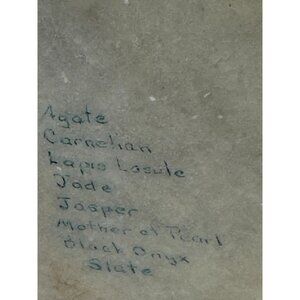 Agate
Carnelian
Lapis Lasule
Jade
Jasper
Mother of Pearl
Black Onyx
Slate